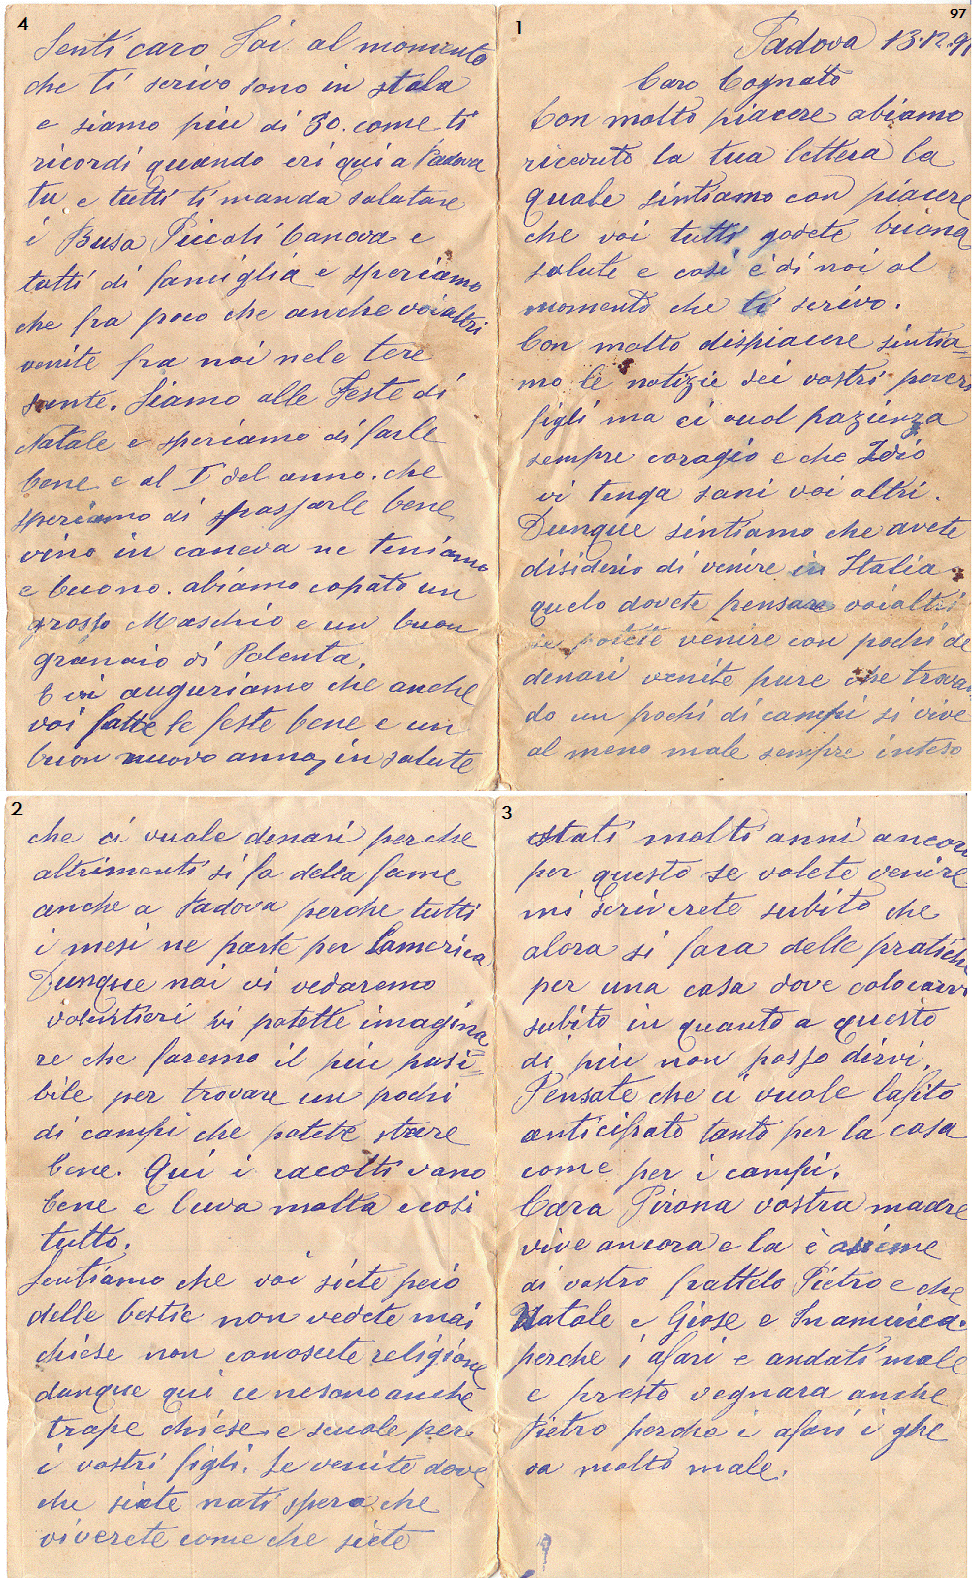 97
1
Padova 13.12.9
Caro Cognatto
Con molto piacere abiamo
ricevuto la tua lettera la
quale sintiamo con piacere
che voi tutti godete buona
salute e cosi è di noi al
momento che ti scrivo.
Con molto dispiacere sintia=
mo le notizie dei vostri poveri
figli ma ci vuol pazienza
sempre coragio e che Idio
vi tenga sani voi altri.
Dunque sintiamo che avete
disiderio di venire in Italia
quelo dovete pensare voialtri
se potete venire con pochi de
denari venite pure che trovan
do un pochi di campi si vive
al meno male sempre inteso
2
che ci vuole denari perche
altrimenti si fa della fame
anche a Padova perche tutti
i mesi ne parte per Lamerica
Dunque noi vi vedaremo
volentieri vi potette imagina
re che faremo il piu posi=
bile per trovare un pochi
di campi che potette stare
bene. Qui i racolti vano
bene e l'uva molta e cosi
tutto.
Sentiamo che voi siete peio
delle bestie non vedete mai
chiese non conoscete religione
dunque qui ce nesono anche
trope chiese e scuole per
i vostri figli. Se venite dove
che siete nati spero che
viverete come che siete
3
stati molti anni ancora
per questo se volete venire
mi scriverete subito che
alora si fara delle pratiche
per una casa dove colocarvi
subito in quanto a questo
di piu non posso dirvi.
Pensate che ci vuole lafito
anticipato tanto per la casa
come per i campi.
Cara Pirona vostra madre
vive ancora e la è asieme
di vostro frattelo Pietro e che
Natale e Giose e Inamerica.
perche i afari e andati male
e presto vegnara anche
Pietro perche i afari i ghe
va molto male.
4
Senti caro Toi al momento
che ti scrivo sono in stala
e siamo piu di 30. come ti
ricordi quando eri qui a Padova
tu e tutti ti manda salutare
i Busa Piccoli Canova e
tutti di famiglia e speriamo
che fra poco che anche voialtri
venite fra noi nele tere
sante. Siamo alle Feste di
Natale e speriamo di farle
bene e al I del anno. che
speriamo di passarle bene
vino in caneva ne teniamo
e buono. abiamo copato un
grosso Maschio e un buon
granaio di Polenta.
E vi auguriamo che anche
voi fatte le feste bene e un
buon nuovo anno, in salute